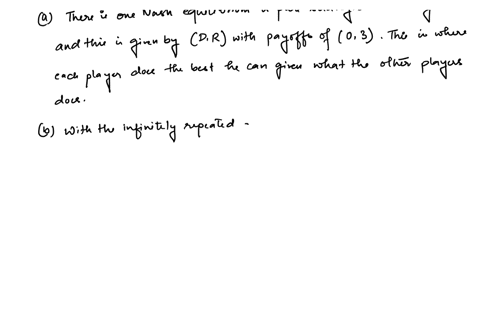 (a) There is one Nash equilibrium
and this is given by (D,R) with payoffs of (0,3). This is where
each player does the best he can given what the other players
does.
(b) With the infinitely repeated -